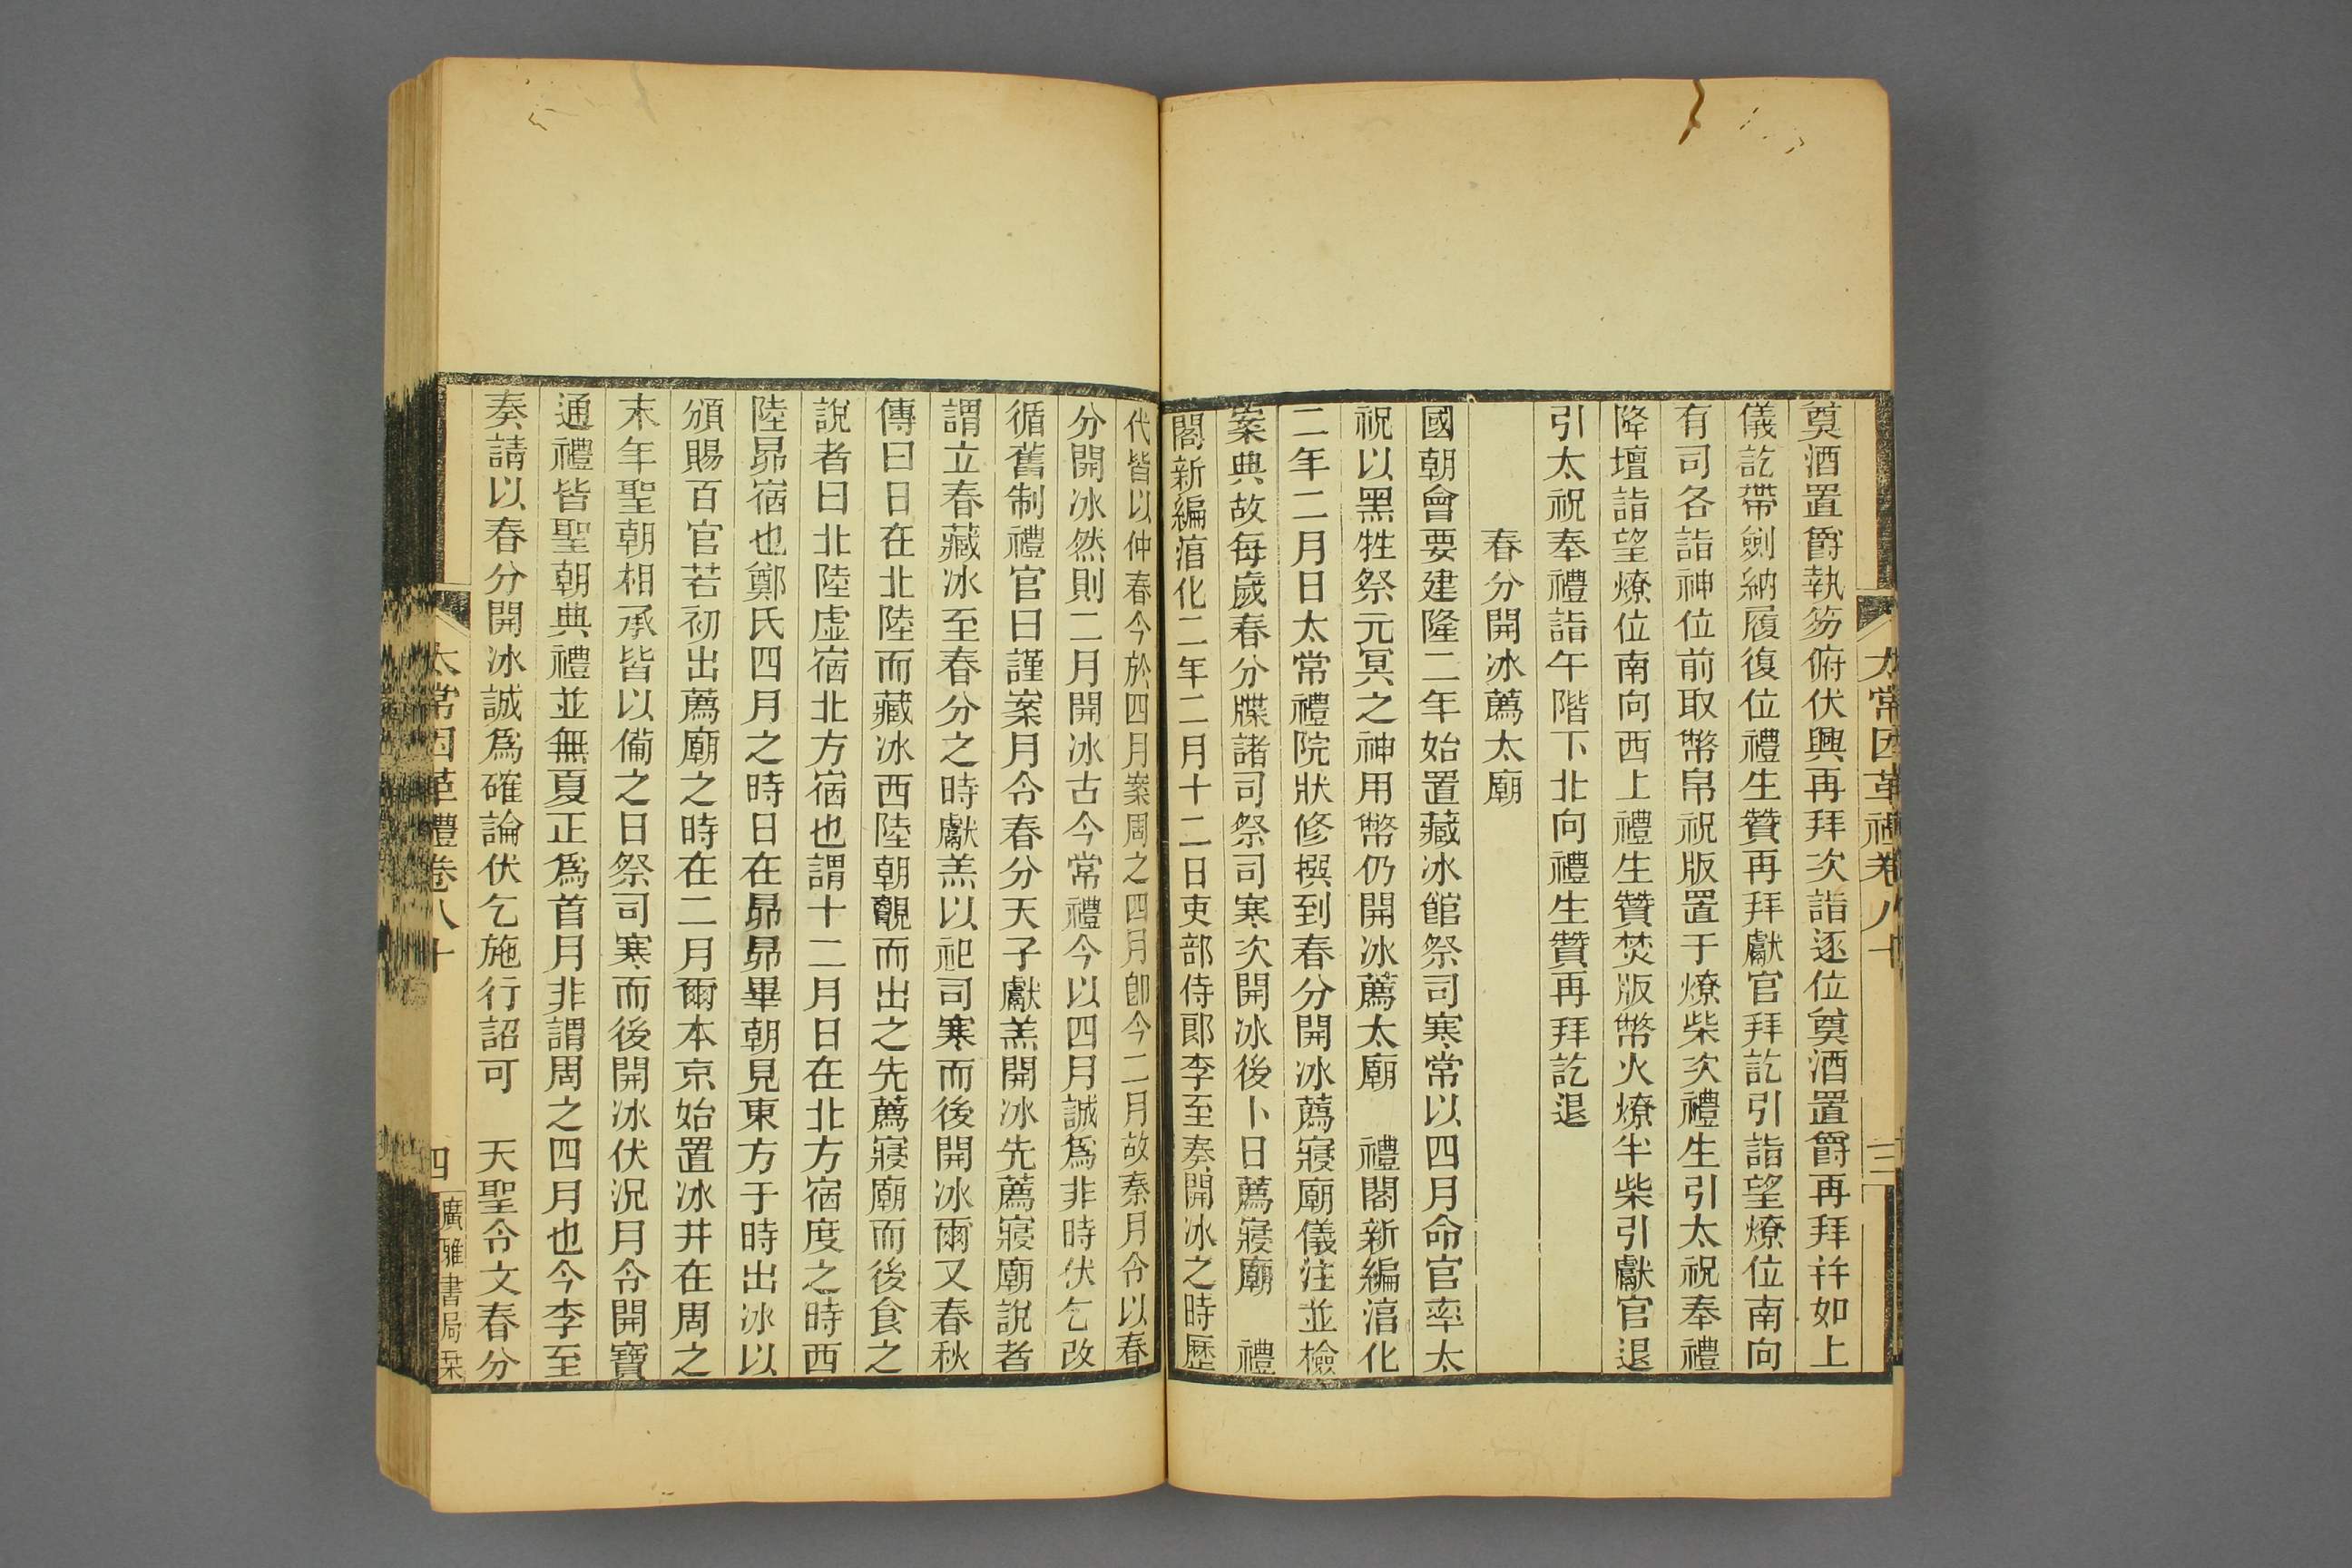 太常因革禮卷八十
三
奠酒置爵執笏俯伏興再拜次詣逐位奠酒置爵再拜并如上
儀訖帶劍納履復位禮生贊再拜獻官拜訖引詣望燎位南向
有司各詣神位前取幣帛祝版置于燎柴次禮生引太祝奉禮
降壇詣望燎位南向西上禮生贊焚版幣火燎半柴引獻官退
引太祝奉禮詣午階下北向禮生贊再拜訖退
春分開冰薦太廟
國朝會要建隆二年始置藏冰館祭司寒常以四月命官率太
祝以黑牲祭元冥之神用幣仍開冰薦太廟　禮閣新編淯化
二年二月日太常禮院狀修撰到春分開冰薦寢廟儀注並檢
案典故每歲春分牒諸司祭司寒次開冰後卜日薦寢廟　禮
閣新編淯化二年二月十二日吏部侍郎李至奏開冰之時歷
代皆以仲春今於四月案周之四月卽今二月故秦月令以春
分開冰然則二月開冰古今常禮今以四月誠爲非時伏乞改
循舊制禮官曰謹案月令春分天子獻羔開冰先薦寢廟說者
謂立春藏冰至春分之時獻羔以祀司寒而後開冰爾又春秋
傳曰日在北陸而藏冰西陸朝覿而出之先薦寢廟而後食之
說者曰北陸虛宿北方宿也謂十二月日在北方宿度之時西
陸昴宿也鄭氏四月之時日在昴昴畢朝見東方于時出冰以
頒賜百官若初出薦廟之時在二月爾本京始置冰井在周之
末年聖朝相承皆以備之日祭司寒而後開冰伏況月令開寶
通禮皆聖朝典禮並無夏正爲首月非謂周之四月也今李至
奏請以春分開冰誠爲確論伏乞施行詔可　天聖令文春分
太常因革禮卷八十
四
廣雅書局栞